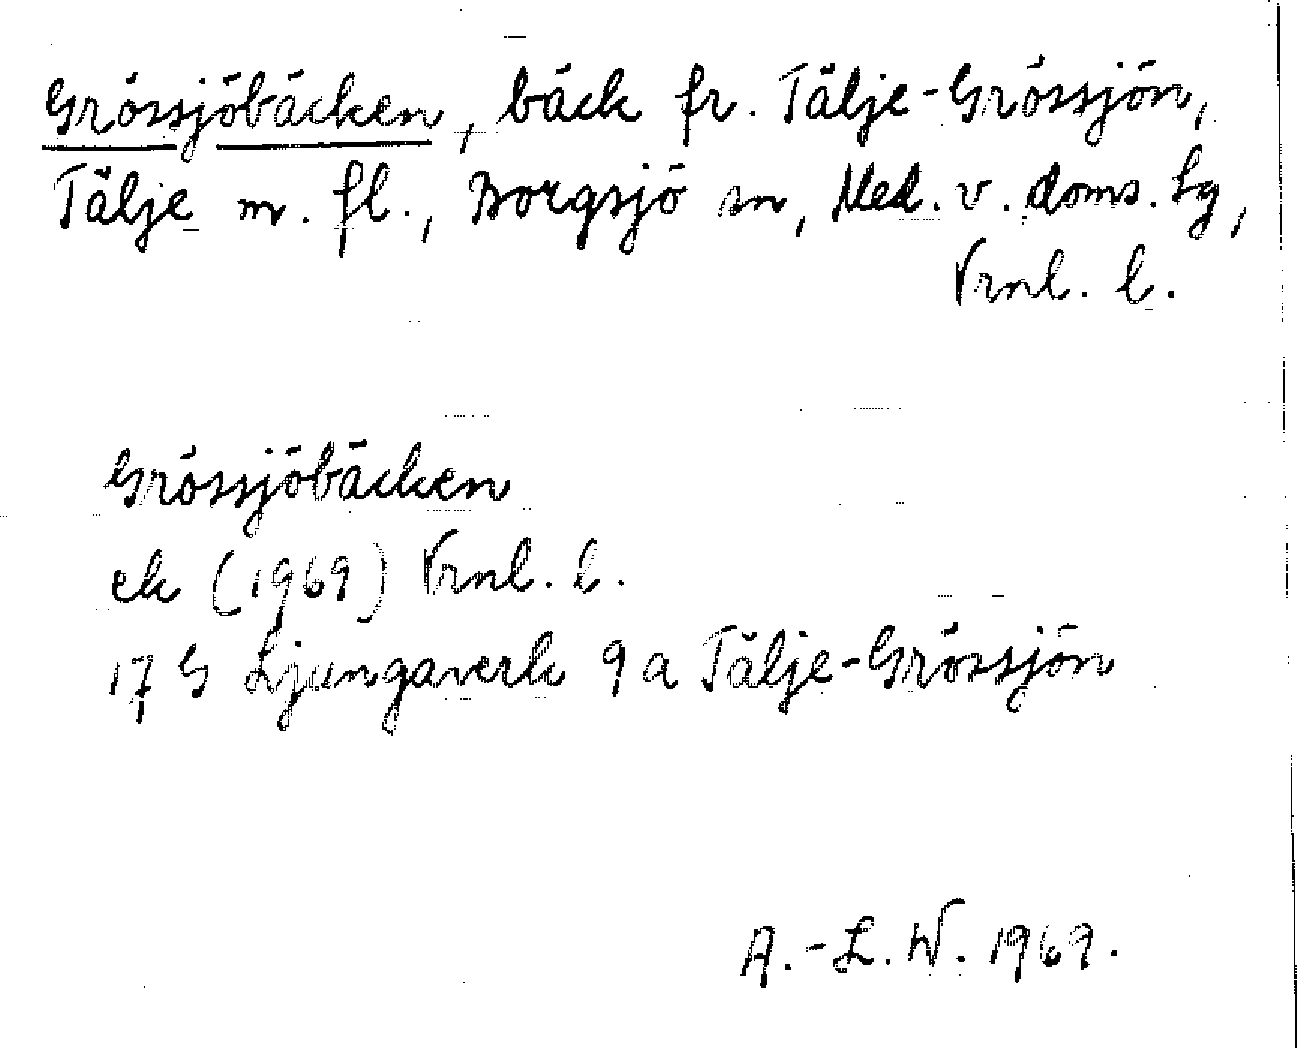 Grössjöbäcken, bäck fr. Tälje-Grössjön,
Tälje m. fl., Borgsjö sn, Med. v. doms. lg,
Vrnl. l.
Grössjöbäcken
ek (1969) Vrnl. l.
17 G Ljungaverk 9 a Tälje-Grössjön
A.-L. W. 1969.